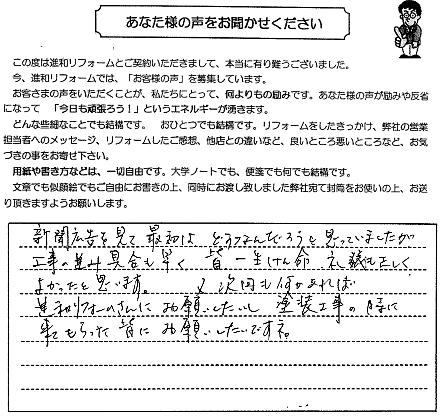 あなた様の声をお聞かせください
この度は進和リフォームとご契約いただきまして、本当に有り難うございました。
今、進和リフォームでは、「お客様の声」を募集しています。
お客さまの声をいただくことが、私たちにとって、何よりもの励みです。あなた様の声が励みや反省
になって 「今日も頑張ろう!」というエネルギーが湧きます。
どんな些細なことでも結構です。 おひとつでも結構です。リフォームをしたきっかけ、弊社の営業
担当者へのメッセージ、リフォームしたご感想、他店との違いなど、良いところ悪いところなど、お気
づきの事をお寄せ下さい。
用紙や書き方などは、一切自由です。大学ノートでも、便箋でも何でも結構です。
文章でも似顔絵でもご自由にお書きの上、同時にお渡し致しました弊社宛て封筒をお使いの上、お送
り頂きますようお願いします。
新聞広告を見て最初は どうなんだろうと思っていましたが
工事の進み具合も早く 皆一生けん命 礼儀も正しく
よかったと思います。 又次回も何かあれば
進和リフォームさんにお願いしたいし 塗装工事の時に
来てもらった皆にお願いしたいですね。